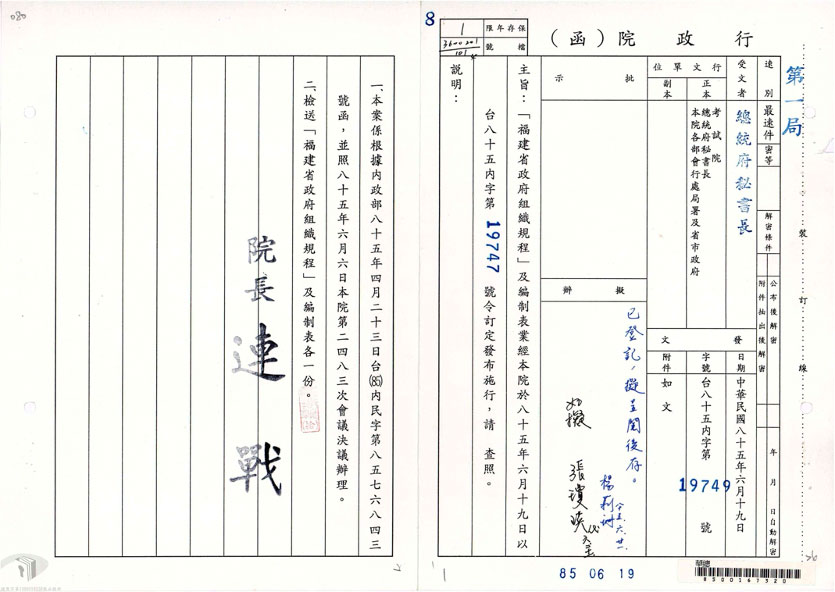 行政院（函）
保存年限
1
檔號
3600201
8
第一局
裝訂線
速別
最速件
密等
解密條件
公布後解密
附件抽出後解密
年 月 日自動解密
受文者
總統府秘書長
行文單位
正本
考試院
總統府秘書長
本院各部會行處局署及省市政府
副本
發文
日期
中華民國八十五年六月十九日
字號
台八十五內字第
19749
號
附件
如文
批示
擬辦
已登記，擬呈閱後存。
如擬
主旨：「福建省政府組織規程」及編制表業經本院於八十五年六月十九日以
台八十五內字第 19747 號令訂定發布施行，請 查照。
說明：
一、本案係根據內政部八十五年四月二十三日台(85)內民字第八五七六八四三
號函，並照八十五年六月六日本院第二四八三次會議決議辦理。
二、檢送「福建省政府組織規程」及編制表各一份。
院長 連戰
85 06 19
華總
8500161520
080